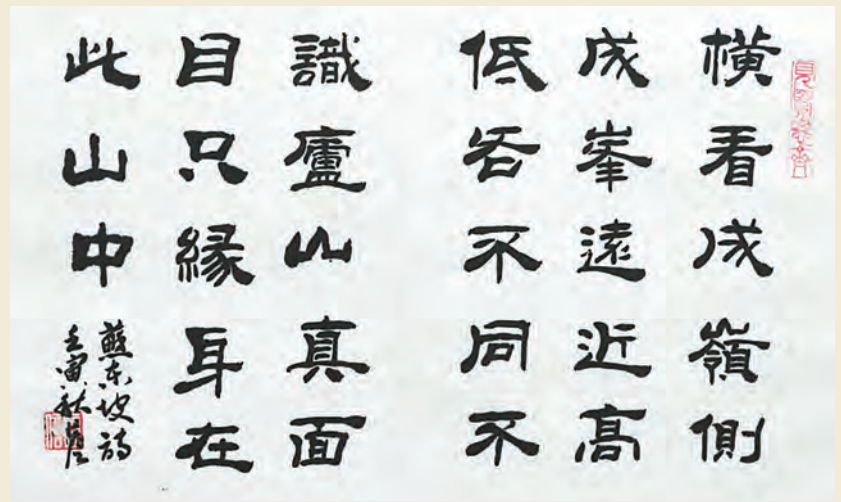 横看成嶺側
成峯遠近高
低各不同不
識廬山真面
目只緣身在
此山中
蘇东坡詩
壬寅秋